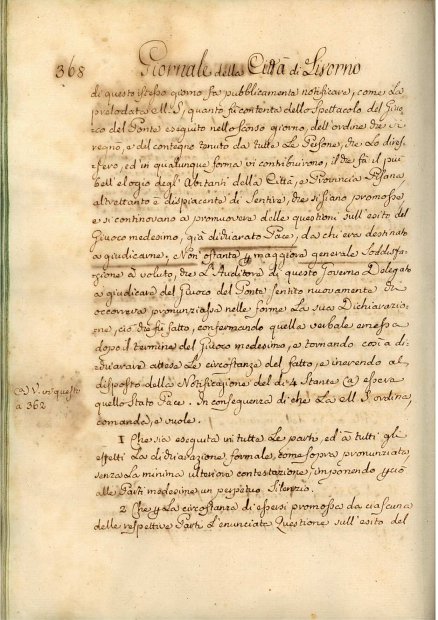 368 Giornale della Città di Livorno
di questo istesso giorno fa pubblicamente notificare, come La
prelodata M. S, quanto fù contenta dello Spettacolo del Giuo
co del Ponte eseguito nello scorso giorno, dell'ordine che vi
regnò, e del contegno tenuto da tutte Le Persone, che Lo dires
sero, ed in qualunque forma vi contribuirono, il che fà il più
bell'elogio degl'Abitanti della Città, e Provincia Pisana
altrettanto è dispiacente di Sentire, che si siano promosse,
e si continovano a promuovere delle questioni sull'esito del
Giuoco medesimo, già dichiarato Pace, da chi era destinato
a giudicarne, e Non ostante maggiore generale Soddisfa
zione à voluto, che L'Auditore di questo Governo Delegato
a giudicare del Giuoco del Ponte sentito nuovamente chi
occorreva pronunziasse nelle forme La sua Dichiarazio
ne, ciò che fù fatto, confermando quella verbale emessa
dopo il termine del Giuoco medesimo, e tornando così a di
chiarare attese Le circostanze del fatto, e inerendo al
disposto della Notificazione del dì 4 Stante (a) essere
quello Stato Pace. In conseguenza di che La M. S. ordina,
comanda, e vuole.
(a) V. in questo
a 362
1 Che sia eseguita in tutte Le parti, ed à tutti gli
effetti La dichiarazione formale, come sopra pronunziata
senza La minima ulteriore contestazione, imponendo
alle Parti medesime un perpetuo Silenzio.
2 Che La circostanza di essersi promossa da ciascuna
delle respettive Parti L'enunciata Questione sull'esito del